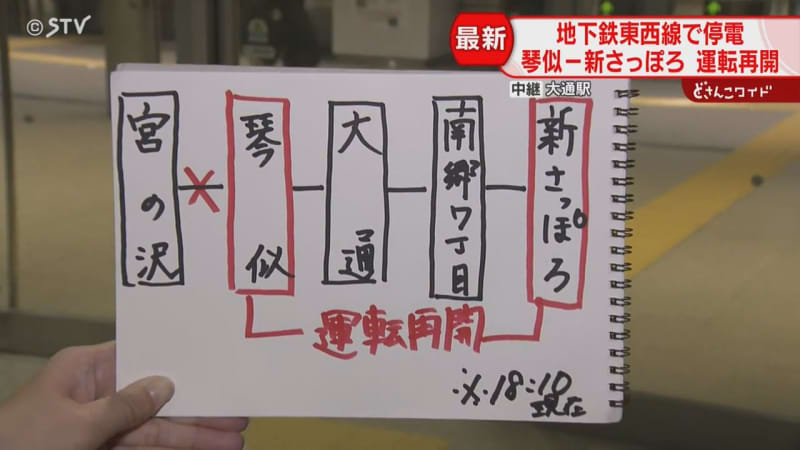 ©STV
最新
地下鉄東西線で停電
琴似ー新さっぽろ 運転再開
中継 大通駅
どさんこワイド
宮の沢
琴似
大通
南郷7丁目
新さっぽろ
運転再開
※18:10
現在